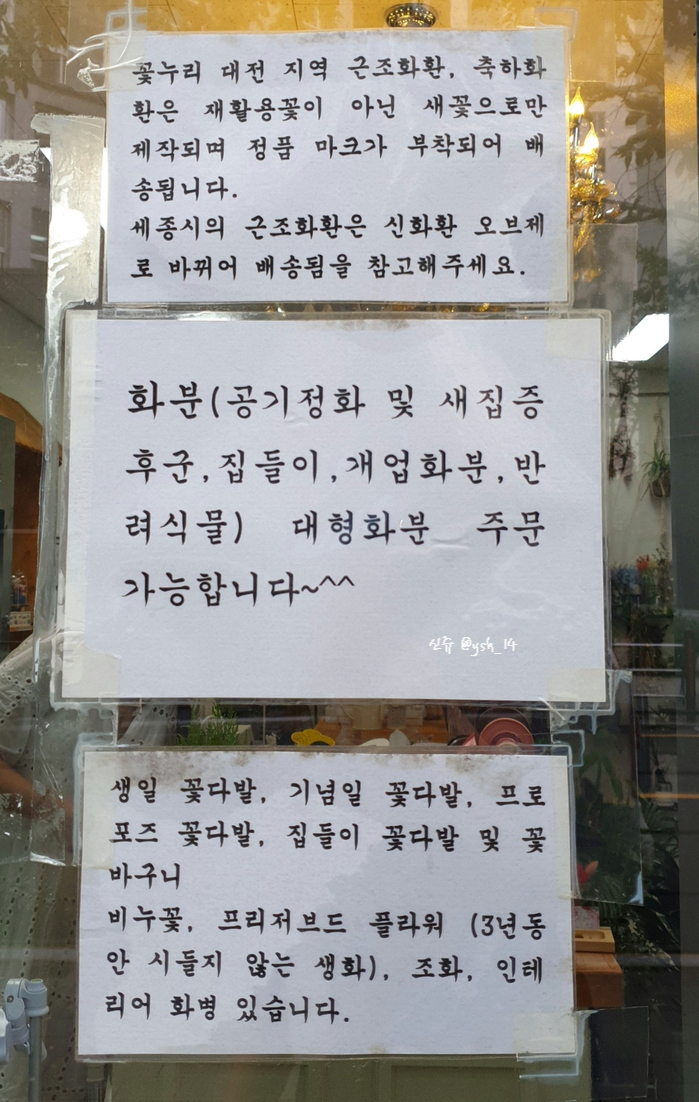 꽃누리 대전 지역 근조화환, 축하화
환은 재활용꽃이 아닌 새꽃으로만
제작되며 정품 마크가 부착되어 배
송됩니다.
세종시의 근조화환은 신화환 오브제
로 바뀌어 배송됨을 참고해주세요.
화분(공기정화 및 새집증
후군,집들이,개업화분,반
려식물) 대형화분 주문
가능합니다~^^
신쥬 @ysh_14
생일 꽃다발, 기념일 꽃다발, 프로
포즈 꽃다발, 집들이 꽃다발 및 꽃
바구니
비누꽃, 프리저브드 플라워 (3년동
안 시들지 않는 생화), 조화, 인테
리어 화병 있습니다.